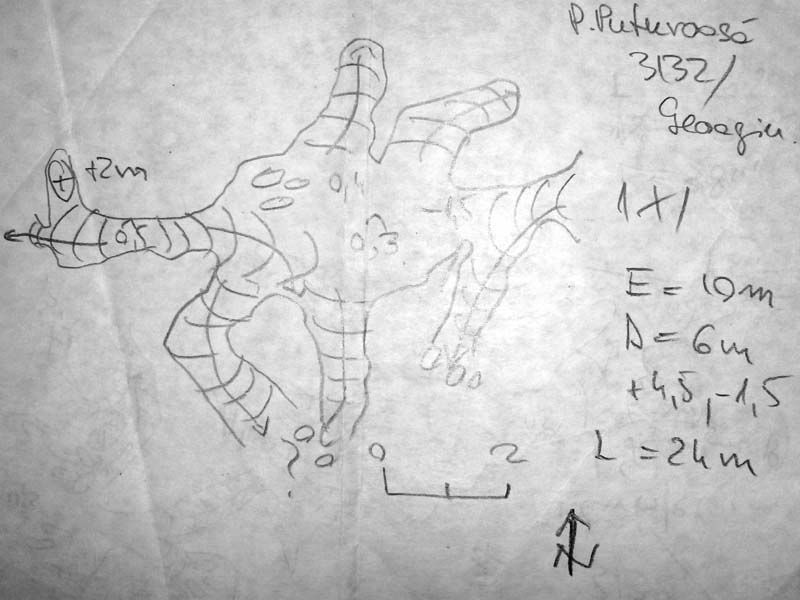 P. Puturoasă
3132/
Geoagiu
+2m
0,4
0,5
0,3
-1,5
1x1
E = 10m
D = 6m
+4,5, -1,5
L = 24m
?
0 2
N